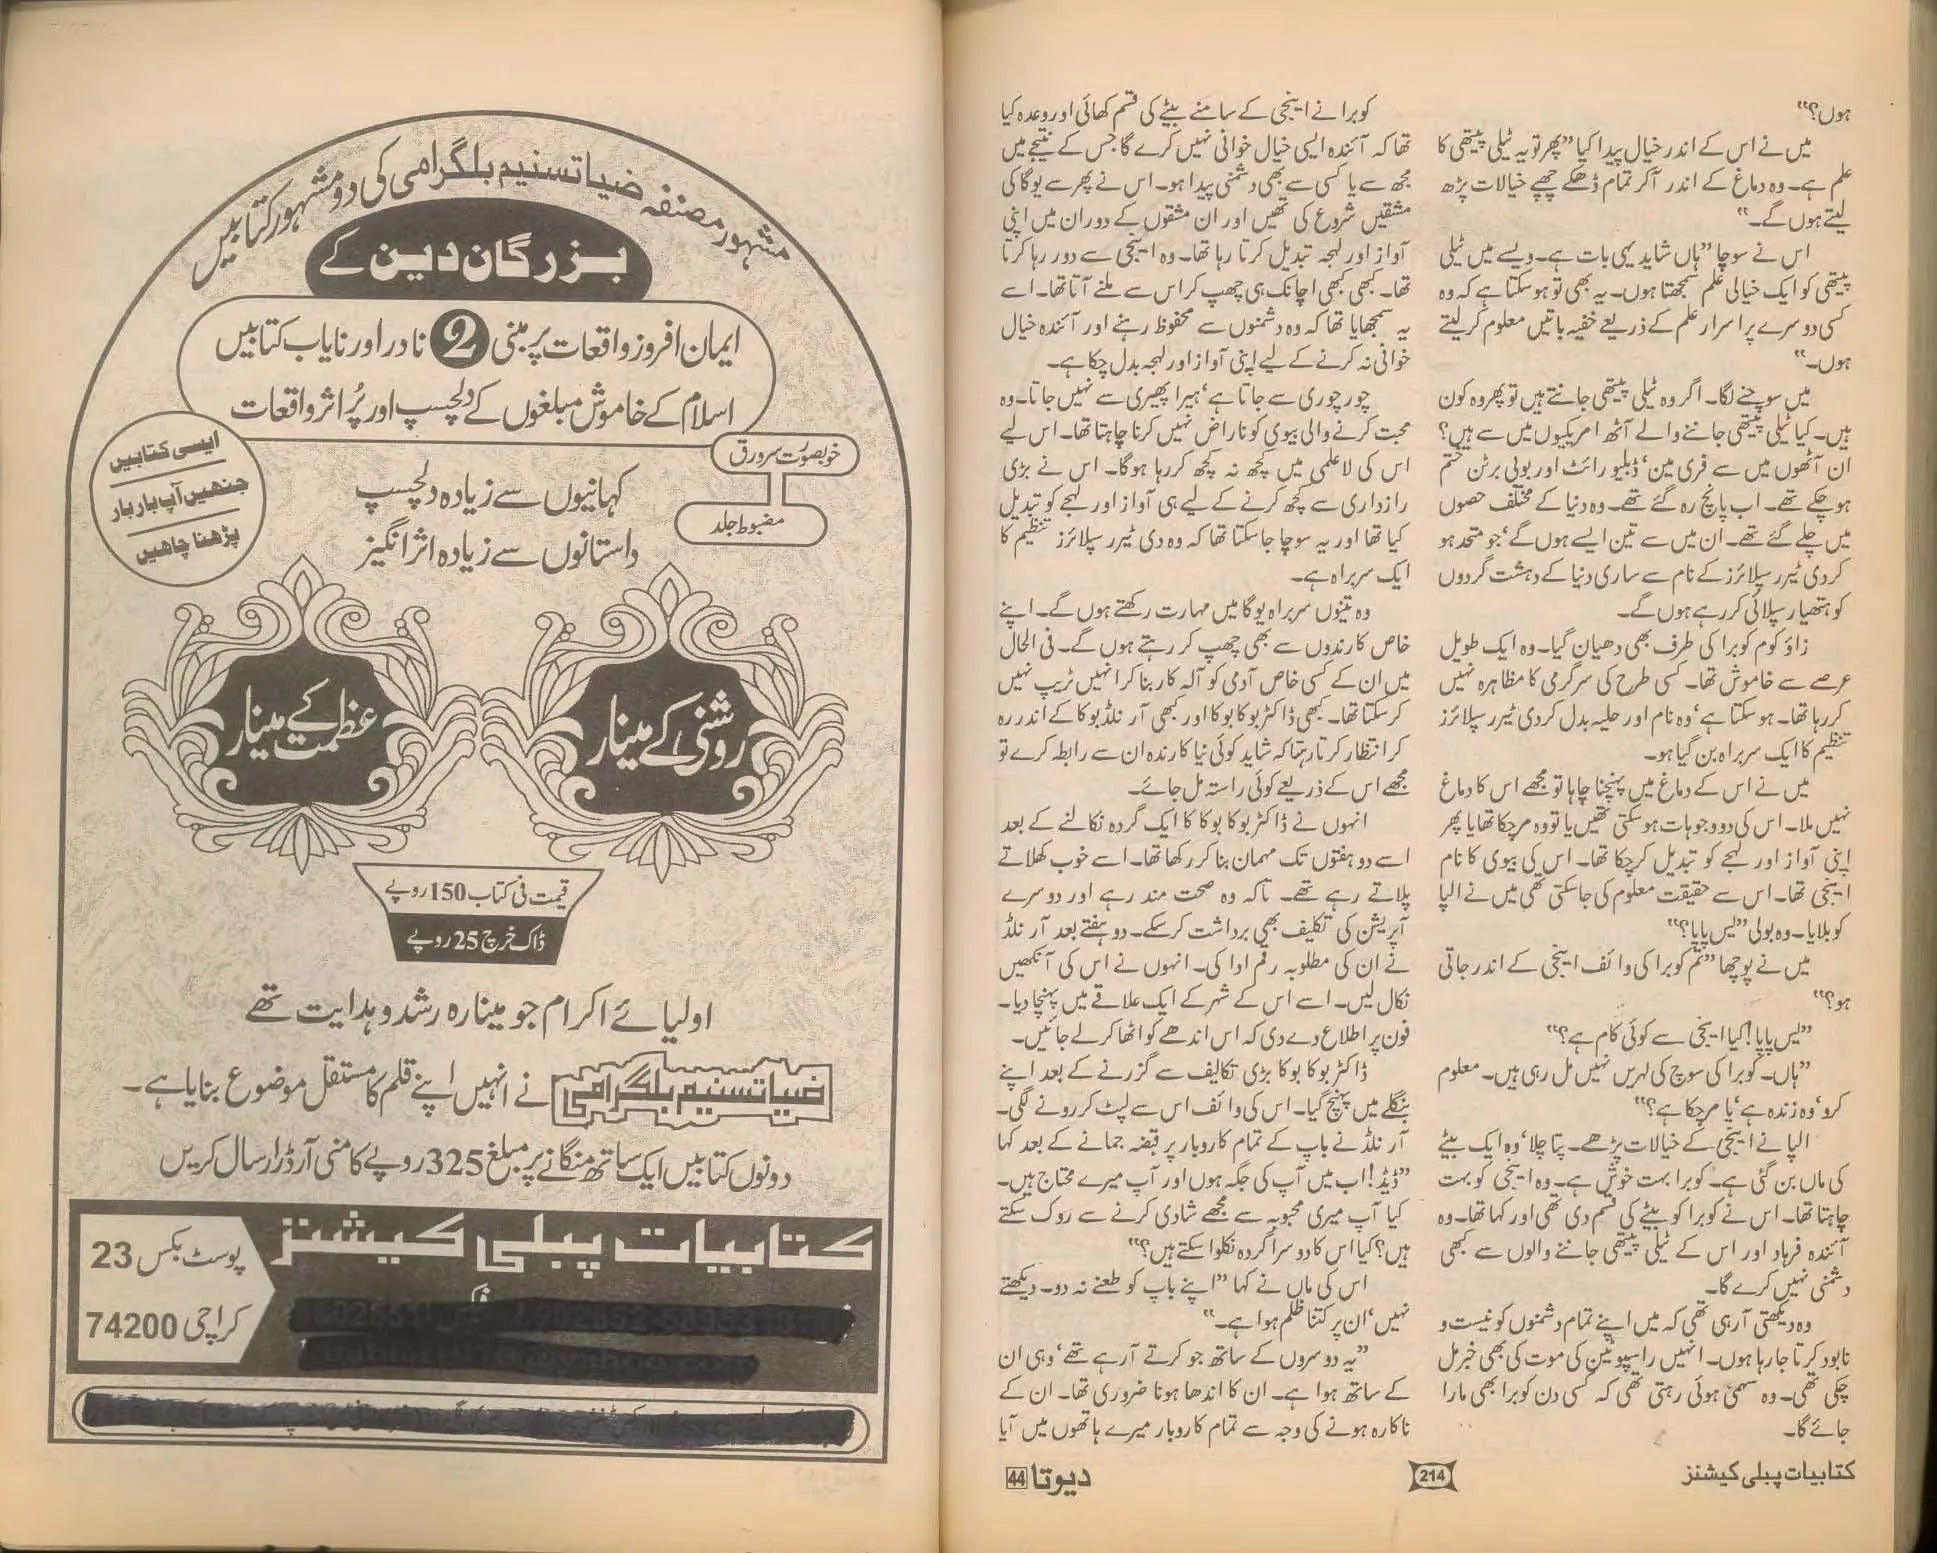 ہوں؟"
میں نے اس کے اندر خیال پیدا کیا "پھر تو یہ ٹیلی پیتھی کا
علم ہے۔ وہ دماغ کے اندر آکر تمام ڈھکے چھپے خیالات پڑھ
لیتے ہوں گے۔"
اس نے سوچا "ہاں شاید یہی بات ہے۔ ویسے میں ٹیلی
پیتھی کو ایک خیالی علم سمجھتا ہوں۔ یہ بھی تو ہو سکتا ہے کہ وہ
کسی دوسرے پراسرار علم کے ذریعے خفیہ باتیں معلوم کر لیتے
ہوں۔"
میں سوچنے لگا۔ اگر وہ ٹیلی پیتھی جانتے ہیں تو پھر وہ کون
ہیں۔ کیا ٹیلی پیتھی جاننے والے آٹھ امریکیوں میں سے ہیں؟
ان آٹھوں میں سے فری مین' ڈبلیو رائٹ اور بوبی برٹن ختم
ہو چکے تھے۔ اب پانچ رہ گئے تھے۔ وہ دنیا کے مختلف حصوں
میں چلے گئے تھے۔ ان میں سے تین ایسے ہوں گے' جو متحد ہو
کر دی ٹیرر سپلائرز کے نام سے ساری دنیا کے دہشت گردوں
کو ہتھیار سپلائی کر رہے ہوں گے۔
زاؤ کوم کوبرا کی طرف بھی دھیان گیا۔ وہ ایک طویل
عرصے سے خاموش تھا۔ کسی طرح کی سرگرمی کا مظاہرہ نہیں
کر رہا تھا۔ ہو سکتا ہے' وہ نام اور حلیہ بدل کر دی ٹیرر سپلائرز
تنظیم کا ایک سربراہ بن گیا ہو۔
میں نے اس کے دماغ میں پہنچنا چاہا تو مجھے اس کا دماغ
نہیں ملا۔ اس کی دو وجوہات ہو سکتی تھیں یا تو وہ مر چکا تھا یا پھر
اپنی آواز اور لہجے کو تبدیل کر چکا تھا۔ اس کی بیوی کا نام
ایجی تھا۔ اس سے حقیقت معلوم کی جا سکتی تھی میں نے الپا
کو بلایا۔ وہ بولی "یس پاپا؟"
میں نے پوچھا "تم کوبرا کی وائف ایجی کے اندر جاتی
ہو؟"
"یس پاپا! کیا ایجی سے کوئی کام ہے؟"
"ہاں۔ کوبرا کی سوچ کی لہریں نہیں مل رہی ہیں۔ معلوم
کرو' وہ زندہ ہے' یا مر چکا ہے؟"
الپا نے ایجی کے خیالات پڑھے۔ پتا چلا' وہ ایک بیٹے
کی ماں بن گئی ہے۔ کوبرا بہت خوش ہے۔ وہ ایجی کو بہت
چاہتا تھا۔ اس نے کوبرا کو بیٹے کی قسم دی تھی اور کہا تھا۔ وہ
آئندہ فرہاد اور اس کے ٹیلی پیتھی جاننے والوں سے کبھی
دشمنی نہیں کرے گا۔
وہ دیکھتی آرہی تھی کہ میں اپنے تمام دشمنوں کو نیست و
نابود کرتا جا رہا ہوں۔ انہیں راسپوٹین کی موت کی بھی خبر مل
چکی تھی۔ وہ سہمی ہوئی رہتی تھی کہ کسی دن کوبرا بھی مارا
جائے گا۔
کوبرا نے ایجی کے سامنے بیٹے کی قسم کھائی اور وعدہ کیا
تھا کہ آئندہ ایسی خیال خوانی نہیں کرے گا جس کے نتیجے میں
مجھ سے یا کسی سے بھی دشمنی پیدا ہو۔ اس نے پھر سے یوگا کی
مشقیں شروع کی تھیں اور ان مشقوں کے دوران میں اپنی
آواز اور لہجہ تبدیل کرتا رہا تھا۔ وہ ایجی سے دور رہا کرتا
تھا۔ کبھی کبھی اچانک ہی چھپ کر اس سے ملنے آتا تھا۔ اسے
یہ سمجھایا تھا کہ وہ دشمنوں سے محفوظ رہنے اور آئندہ خیال
خوانی نہ کرنے کے لیے اپنی آواز اور لہجہ بدل چکا ہے۔
چور چوری سے جاتا ہے' ہیرا پھیری سے نہیں جاتا۔ وہ
محبت کرنے والی بیوی کو ناراض نہیں کرنا چاہتا تھا۔ اس لیے
اس کی لاعلمی میں کچھ نہ کچھ کر رہا ہوگا۔ اس نے بڑی
رازداری سے کچھ کرنے کے لیے ہی آواز اور لہجے کو تبدیل
کیا تھا اور یہ سوچا جا سکتا تھا کہ وہ دی ٹیرر سپلائرز تنظیم کا
ایک سربراہ ہے۔
وہ تینوں سربراہ یوگا میں مہارت رکھتے ہوں گے۔ اپنے
خاص کارندوں سے بھی چھپ کر رہتے ہوں گے۔ فی الحال
میں ان کے کسی خاص آدمی کو آلہ کار بنا کر انہیں ٹریپ نہیں
کر سکتا تھا۔ کبھی ڈاکٹر بوکا بوکا اور کبھی آرنلڈ بوکا کے اندر رہ
کر انتظار کرتا رہتا کہ شاید کوئی نیا کارندہ ان سے رابطہ کرے تو
مجھے اس کے ذریعے کوئی راستہ مل جائے۔
انہوں نے ڈاکٹر بوکا بوکا کا ایک گردہ نکالنے کے بعد
اسے دو ہفتوں تک مہمان بنا کر رکھا تھا۔ اسے خوب کھلاتے
پلاتے رہے تھے۔ تاکہ وہ صحت مند رہے اور دوسرے
آپریشن کی تکلیف بھی برداشت کر سکے۔ دو ہفتے بعد آرنلڈ
نے ان کی مطلوبہ رقم ادا کی۔ انہوں نے اس کی آنکھیں
نکال لیں۔ اسے اس کے شہر کے ایک علاقے میں پہنچا دیا۔
فون پر اطلاع دے دی کہ اس اندھے کو اٹھا کر لے جائیں۔
ڈاکٹر بوکا بوکا بڑی تکالیف سے گزرنے کے بعد اپنے
بنگلے میں پہنچ گیا۔ اس کی وائف اس سے لپٹ کر رونے لگی۔
آرنلڈ نے باپ کے تمام کاروبار پر قبضہ جمانے کے بعد کہا
"ڈیڈ! اب میں آپ کی جگہ ہوں اور آپ میرے محتاج ہیں۔
کیا آپ میری محبوبہ سے مجھے شادی کرنے سے روک سکتے
ہیں؟ کیا اس کا دوسرا گردہ نکلوا سکتے ہیں؟"
اس کی ماں نے کہا "اپنے باپ کو طعنے نہ دو۔ دیکھتے
نہیں' ان پر کتنا ظلم ہوا ہے۔"
"یہ دوسروں کے ساتھ جو کرتے آرہے تھے' وہی ان
کے ساتھ ہوا ہے۔ ان کا اندھا ہونا ضروری تھا۔ ان کے
ناکارہ ہونے کی وجہ سے تمام کاروبار میرے ہاتھوں میں آیا
کتابیات پبلی کیشنز
214
دیوتا 44
مشہور مصنفہ ضیا تسنیم بلگرامی کی دو مشہور کتابیں
بزرگان دین کے
ایمان افروز واقعات پر مبنی 2 نادر اور نایاب کتابیں
اسلام کے خاموش مبلغوں کے دلچسپ اور پُراثر واقعات
خوبصورت سرورق
مضبوط جلد
ایسی کتابیں
جنھیں آپ بار بار
پڑھنا چاہیں
کہانیوں سے زیادہ دلچسپ
داستانوں سے زیادہ اثر انگیز
روشنی کے مینار
عظمت کے مینار
قیمت فی کتاب 150 روپے
ڈاک خرچ 25 روپے
اولیائے اکرام جو مینارہ رشد و ہدایت تھے
ضیا تسنیم بلگرامی نے انہیں اپنے قلم کا مستقل موضوع بنایا ہے۔
دونوں کتابیں ایک ساتھ منگانے پر مبلغ 325 روپے کا منی آرڈر ارسال کریں
کتابیات پبلی کیشنز
پوسٹ بکس 23
کراچی 74200